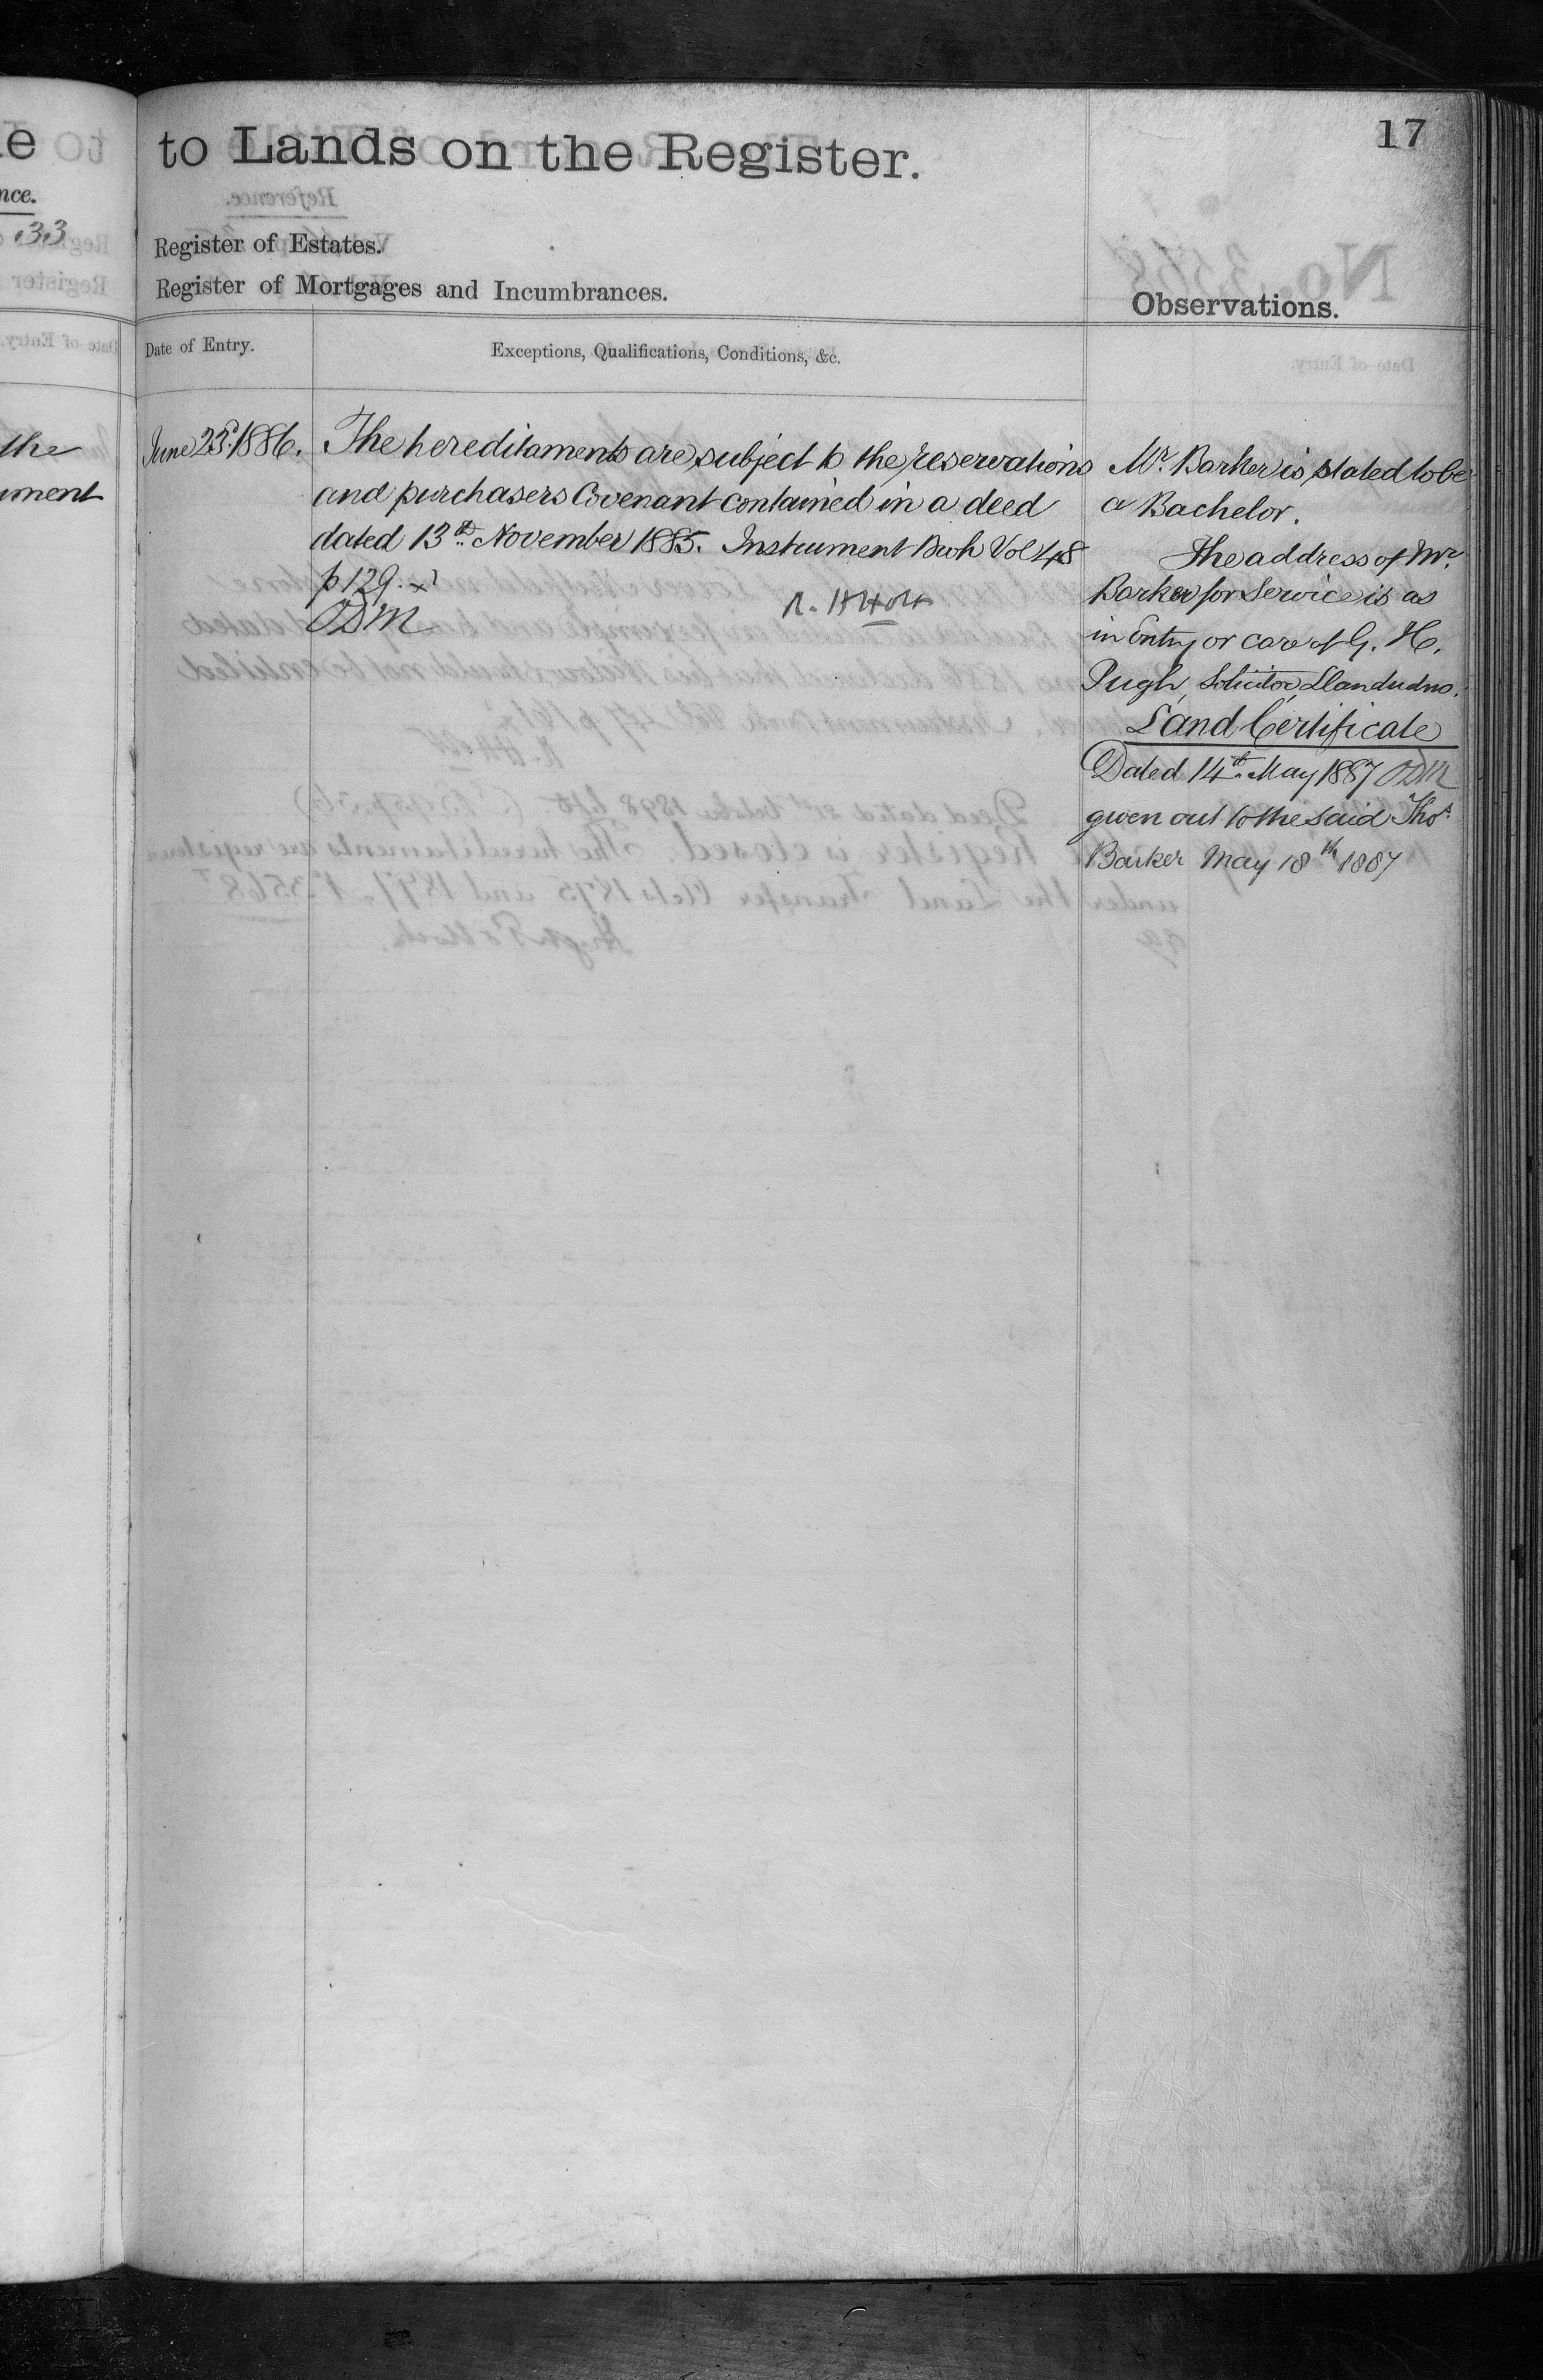 17
to Lands on the Register.
Register of Estates.
Register of Mortgages and Incumbrances.
Observations.
Date of Entry.
Exceptions, Qualifications, Conditions, &c.
June 23d. 1886.
The hereditaments are subject to the reservations
and purchasers Covenant contained in a deed
dated 13th. November 1885. Instrument Book Vol 48
p 129. x
ODM
R. H Holt
Mr. Barker is stated to be
a Bachelor.
The address of Mr.
Barker for Service is as
in Entry or care of G. H.
Pugh, Solicitor Llandudno.
Land Certificate
Dated 14th. May 1887 ODM
given out to the said Thos.
Barker May 18th 1887
the
ument
nce.